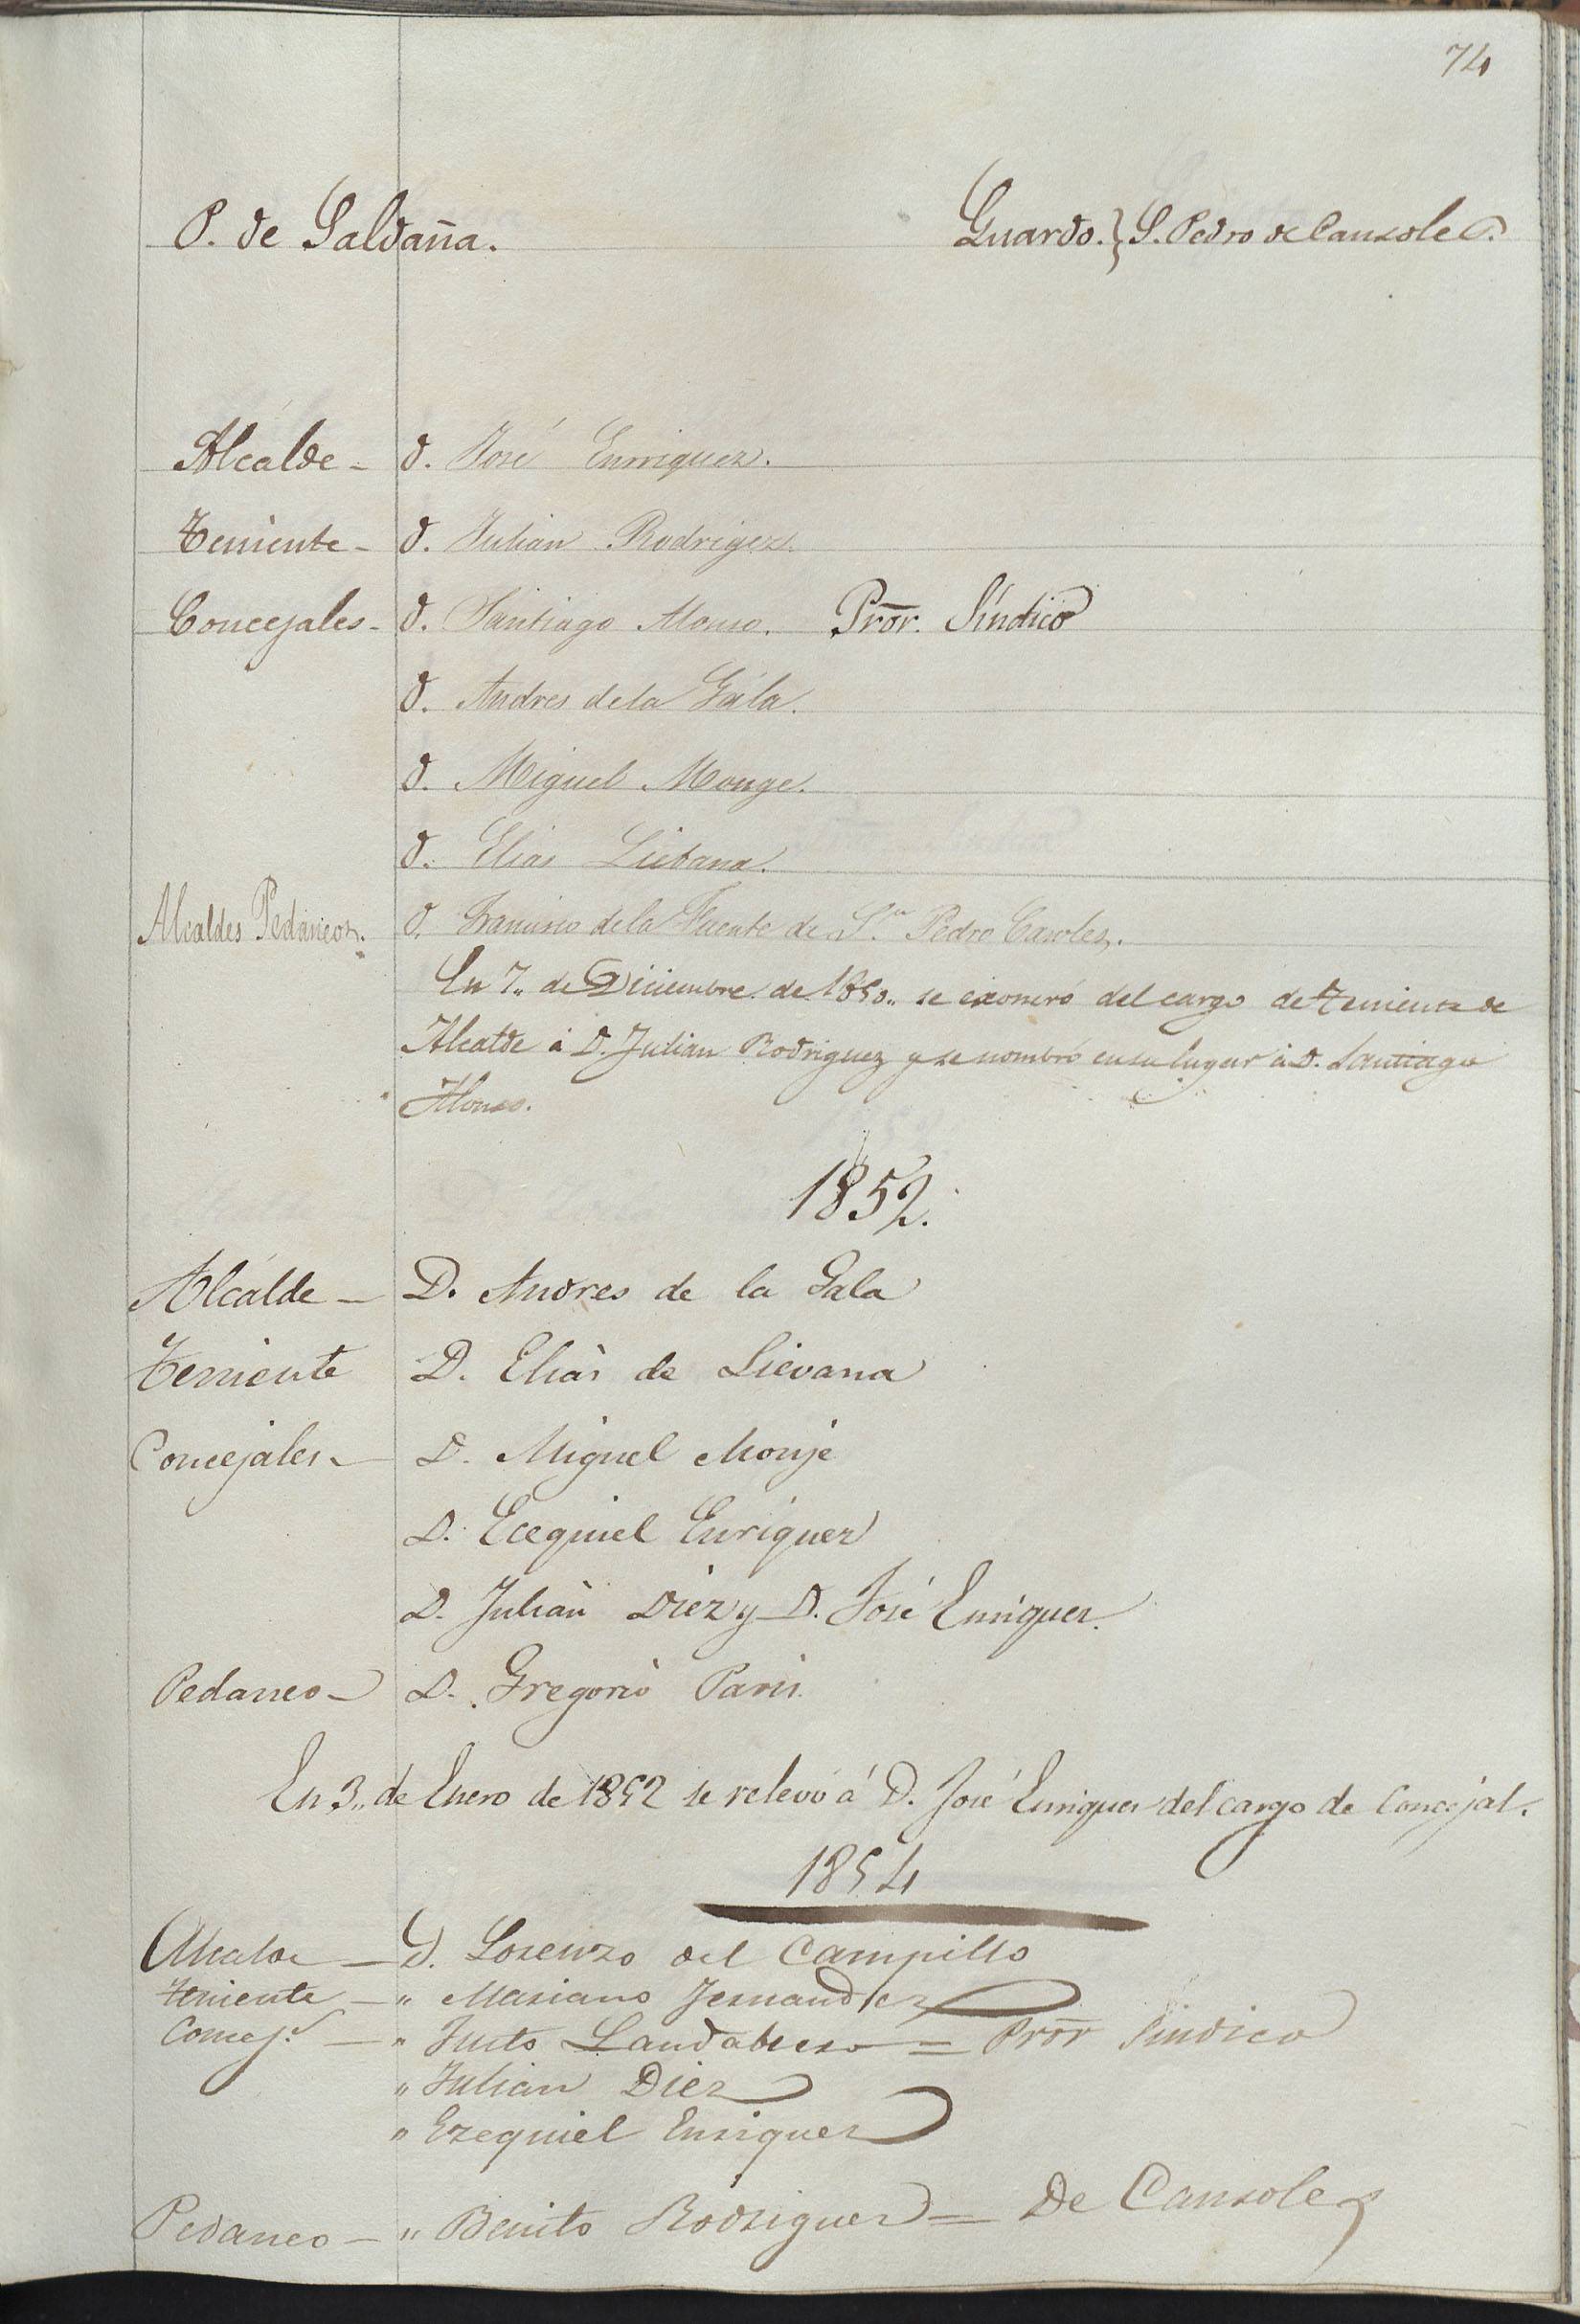 74
P. de Saldaña. Guardo. } S. Pedro de Cansoles.
Alcalde - D. José Enrriquez.
Teniente - D. Julian Rodrigez.
Concejales - D. Santiago Alonso. Pror. Síndico
D. Andres de la Gala.
D. Miguel Monge.
D. Elias Liebana.
Alcaldes Pedáneos. D. Francisco de la Fuente de S.n Pedro Casoles.
En 7,, de Diciembre de 1850,, se exoneró del cargo de Teniente de
Alcalde á D. Julian Rodriguez y se nombró en su lugar á D. Santiago
Alonso.
1852.
Alcalde - D. Andres de la Gala
Teniente D. Elias de Lievana
Concejales - D. Miguel Monje
D. Ecequiel Enriquez
D. Julián Diez y D. José Enriquez.
Pedaneo - D. Gregorio Paris.
En 3,, de Enero de 1852 se relevó á D. José Enriquez del cargo de Concejal.
1854
Alcalde - D. Lorenzo del Campillo
Teniente - " Mariano Fernandez
Concej.s - " Justo Landabuezo = Pror Sindico
" Julian Diez
" Ezequiel Enriquez
Pedaneo - " Benito Rodriguez = De Cansoles